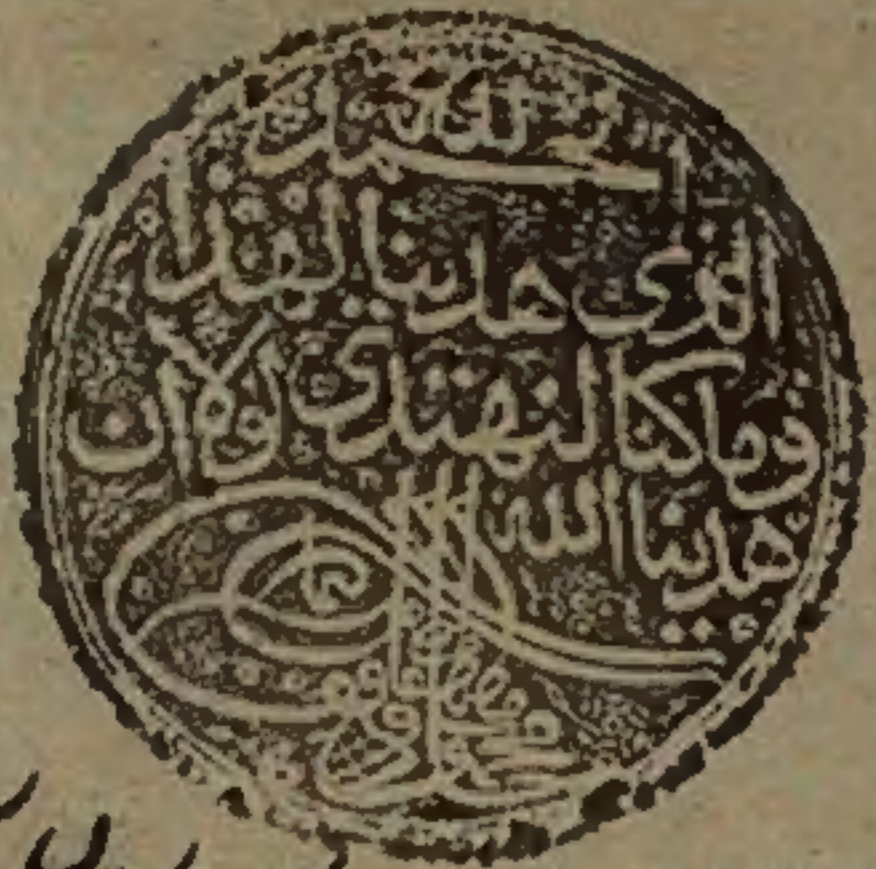 الحمد لله
الذى هدينا لهذا
وما كنا لنهتدى لولا أن
هدينا الله
محمود